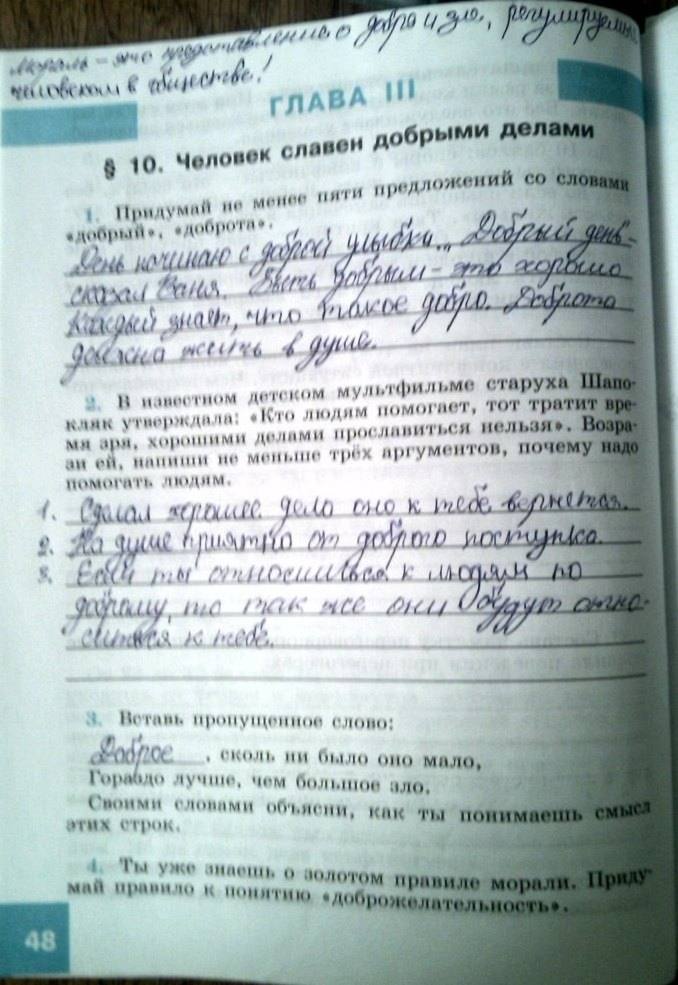 Мораль – это представление о добро и зло, регулируемые
человеком в общистве!
ГЛАВА III
§ 10. Человек славен добрыми делами
1. Придумай не менее пяти предложений со словами
«добрый», «доброта».
День начинаю с доброй улыбки. „Добрый день"-
сказал Ваня. Быть добрым – это хорошо
Каждый знает, что такое добро. Доброта
должна жить в душе.
2. В известном детском мультфильме старуха Шапо-
кляк утверждала: «Кто людям помогает, тот тратит вре-
мя зря, хорошими делами прославиться нельзя». Возра-
зи ей, напиши не меньше трёх аргументов, почему надо
помогать людям.
1. Сделал хорошее дело оно к тебе вернется.
2. На душе приятно от доброго поступка.
3. Если ты относишься к людям по
доброму, то так же они будут отно-
ситься к тебе.
3. Вставь пропущенное слово:
Доброе, сколь ни было оно мало,
Гораздо лучше, чем большое зло.
Своими словами объясни, как ты понимаешь смысл
этих строк.
4. Ты уже знаешь о золотом правиле морали. Приду-
май правило к понятию «доброжелательность».
48